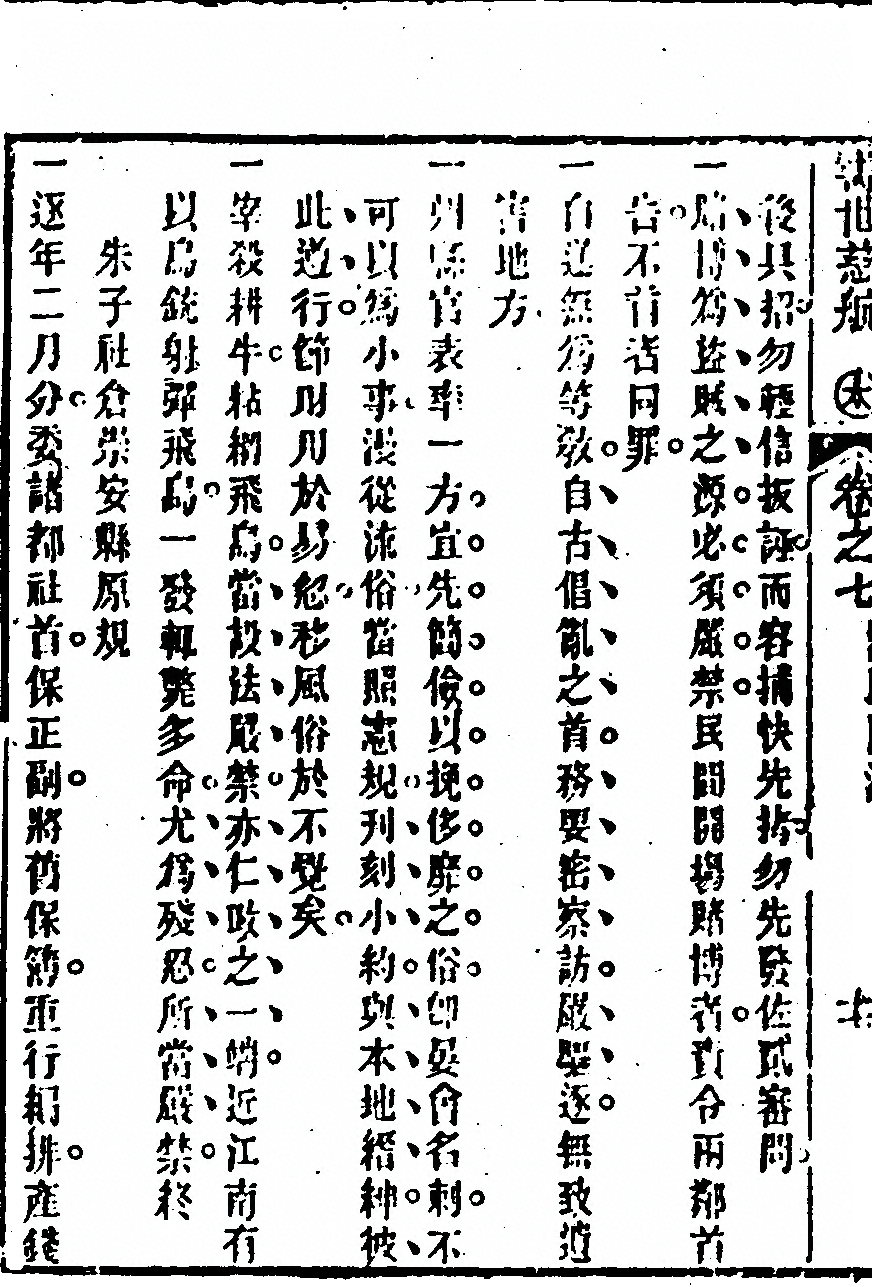 後具招勿輕信扳誣而容捕快先拷勿先發佐貳審問
一賭博為盜賊之源必須嚴禁民間開場賭博者責令兩鄰首
告不首者同罪
一白蓮無為等教自古倡亂之首務要密察訪嚴驅逐無致遺
害地方
一州縣官表率一方宜先簡儉以挽侈靡之俗卽宴會名刺不
可以為小事漫從流俗當照憲規刊刻小約與本地縉紳彼
此遵行節財用於易忽移風俗於不覺矣
一宰殺耕牛粘網飛鳥當設法嚴禁亦仁政之一端近江南有
以鳥銃射彈飛鳥一發輒斃多命尤為殘忍所當嚴禁終
朱子社倉崇安縣原規
一逐年二月分委諸都社首保正副將舊保簿重行編排產錢
世慈航
卷之七